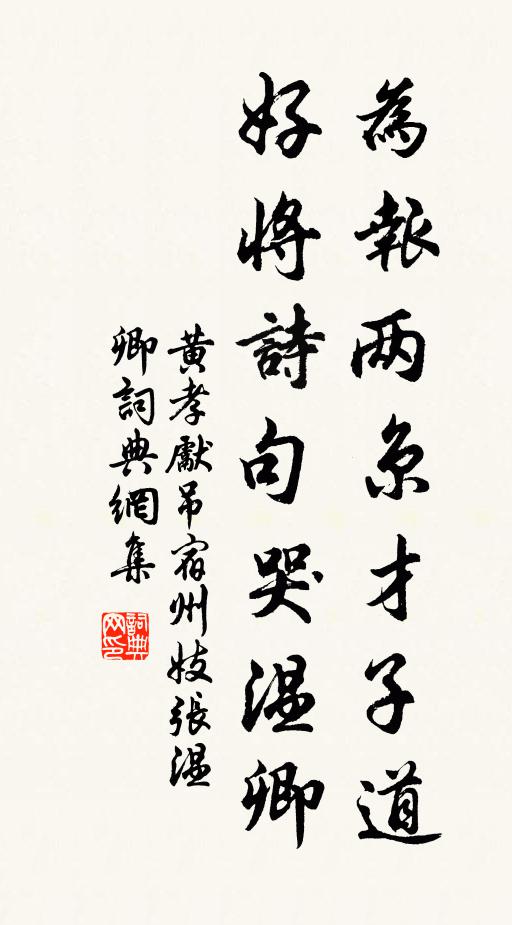 為報两京才子道
好將詩句哭温卿
黃孝獻吊宿州妓張温
卿詞典網集
詞典网印